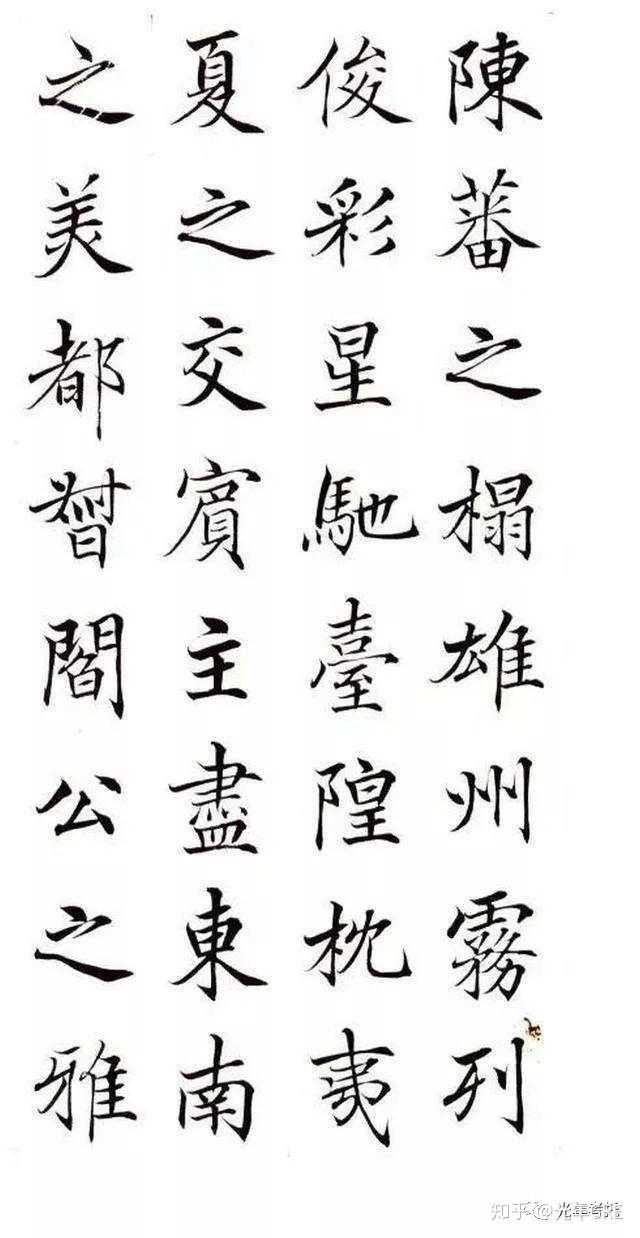 陳蕃之榻雄州霧列
俊彩星馳臺隍枕夷
夏之交賓主盡東南
之美都督閻公之雅
知乎